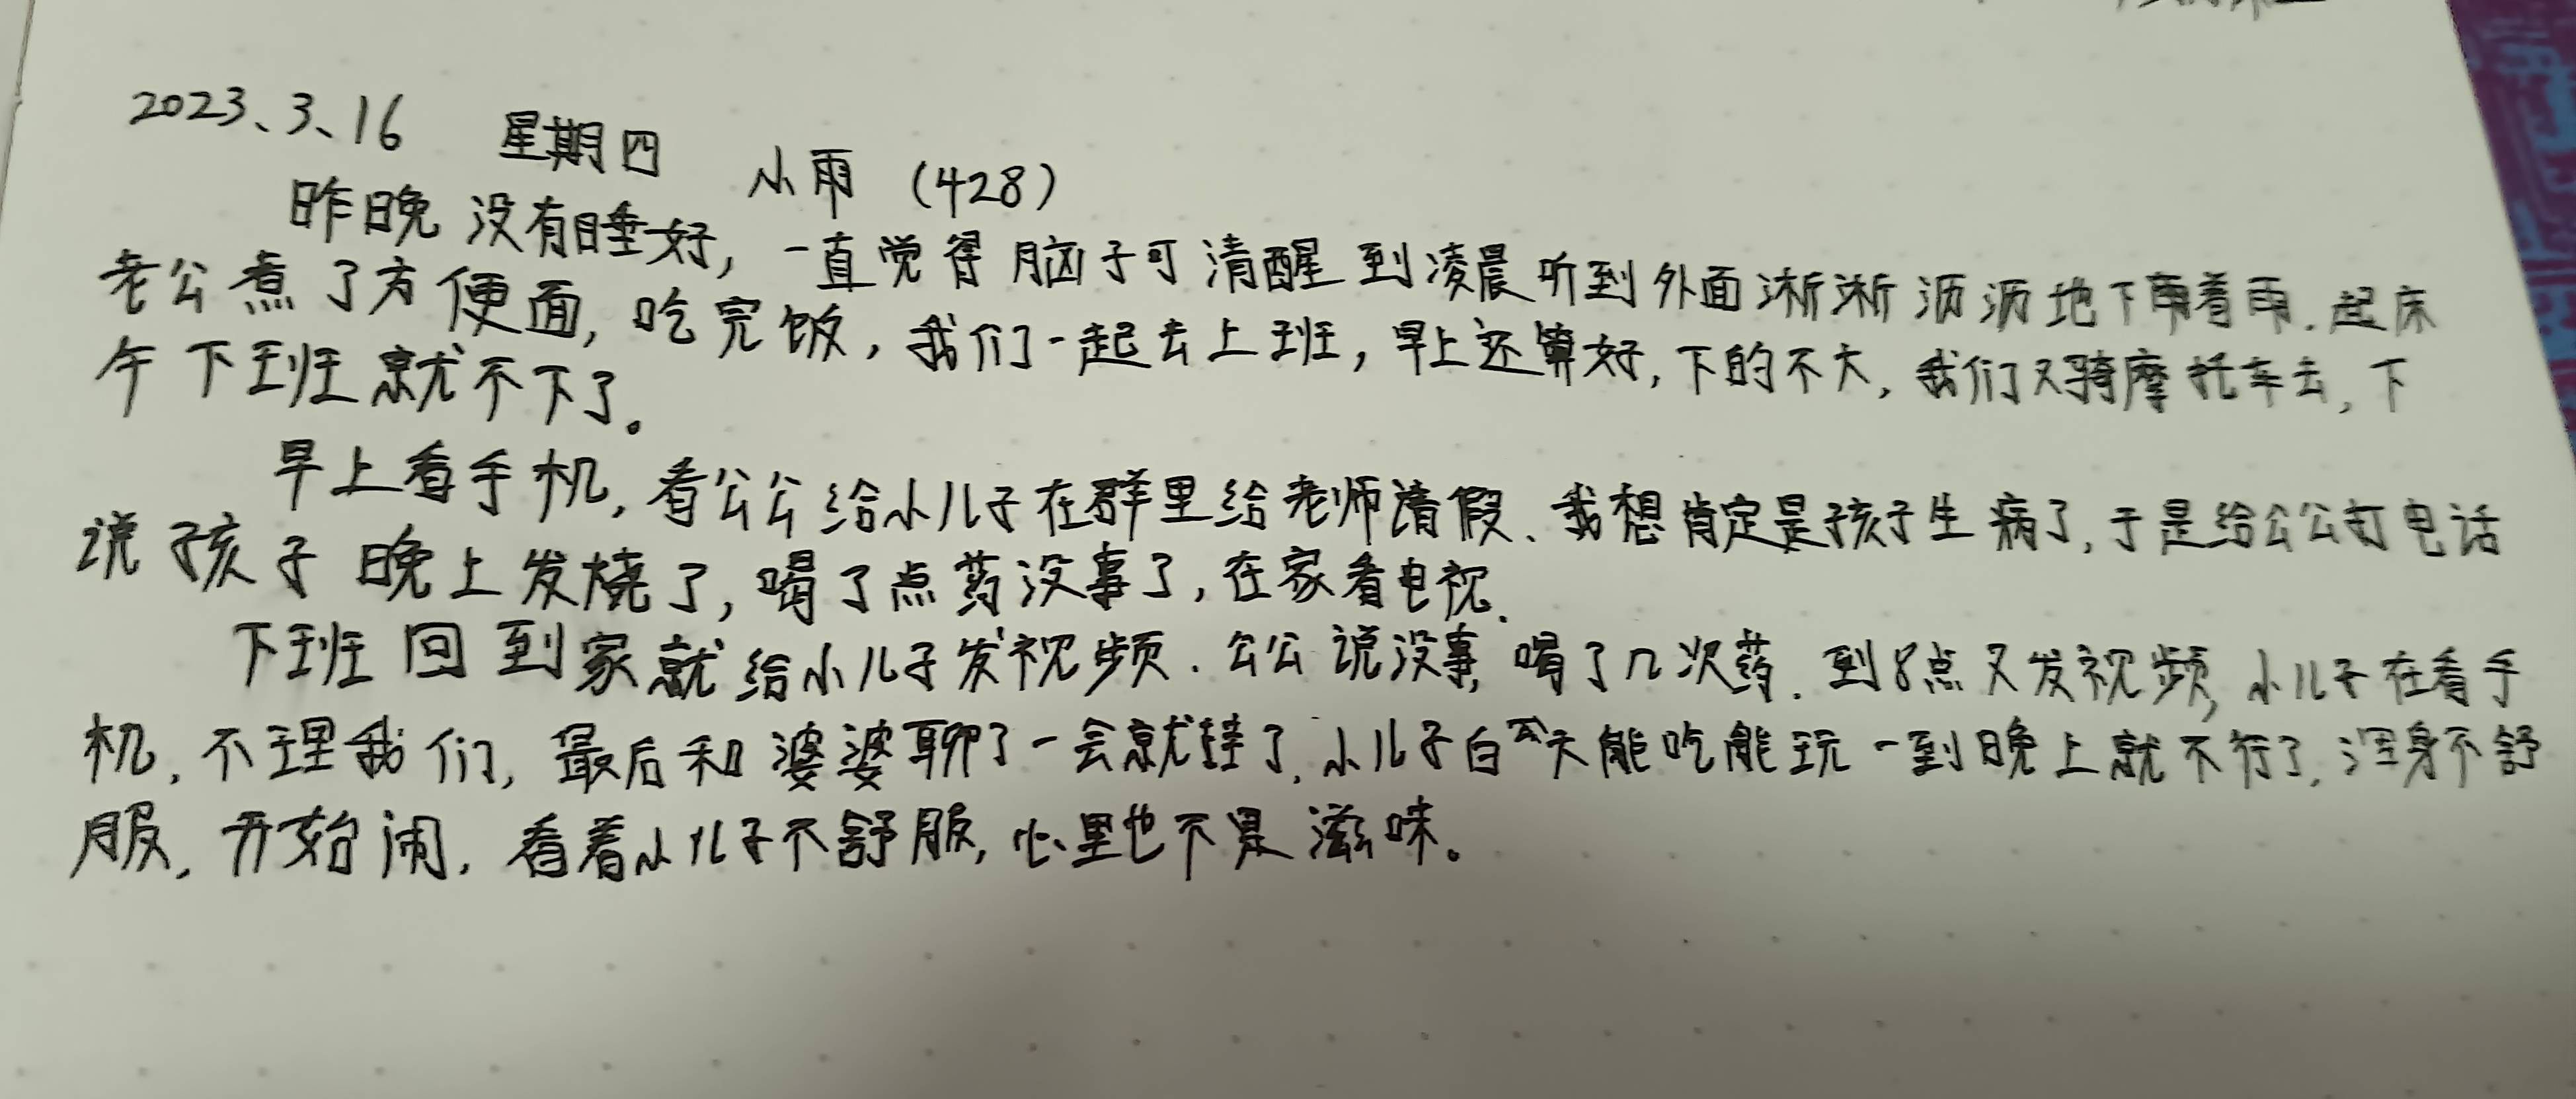 2023、3、16 星期四 小雨 (428)
昨晚没有睡好, 一直觉得脑子可清醒到凌晨听到外面淅淅沥沥地下着雨. 起床
老公煮了方便面, 吃完饭, 我们一起去上班, 早上还算好, 下的不大, 我们又骑摩托车去, 下
午下班就不下了。
早上看手机, 看公公给小儿子在群里给老师请假、我想肯定是孩子生病了, 于是给公公打电话
说孩子晚上发烧了, 喝了点药没事了, 在家看电视.
下班回到家就给小儿子发视频. 公公说没事, 喝了几次药. 到8点又发视频, 小儿子在看手
机, 不理我们, 最后和婆婆聊了一会就挂了. 小儿子白天能吃能玩一到晚上就不行了, 浑身不舒
服, 开始闹, 看着小儿子不舒服, 心里也不是滋味。